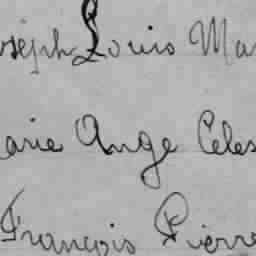 oséph Louis Ma
arie Ange Céles
François Pierre